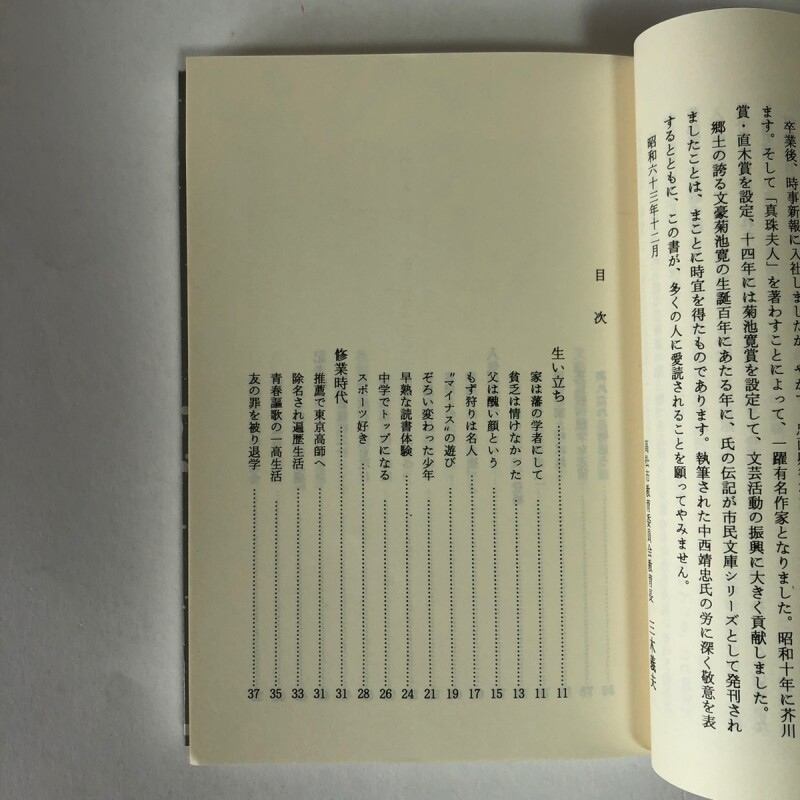 卒業後、時事新報に入社しましたが、やがて
ます。そして「真珠夫人」を著わすことによって、一躍有名作家となりました。昭和十年に芥川
賞・直木賞を設定、十四年には菊池寛賞を設定して、文芸活動の振興に大きく貢献しました。
郷土の誇る文豪菊池寛の生誕百年にあたる年に、氏の伝記が市民文庫シリーズとして発刊され
ましたことは、まことに時宜を得たものであります。執筆された中西靖忠氏の労に深く敬意を表
するとともに、この書が、多くの人に愛読されることを願ってやみません。
昭和六十三年十二月
教育委員会教育長 三木義夫
目次
生い立ち 11
家は藩の学者にして 11
貧乏は情けなかった 13
父は醜い顔という 15
もず狩りは名人 17
“マイナス”の遊び 19
ぞろい変わった少年 21
早熟な読書体験 24
中学でトップになる 26
スポーツ好き 28
修業時代 31
推薦で東京高師へ 31
除名され遍歴生活 33
青春謳歌の一高生活 35
友の罪を被り退学 37